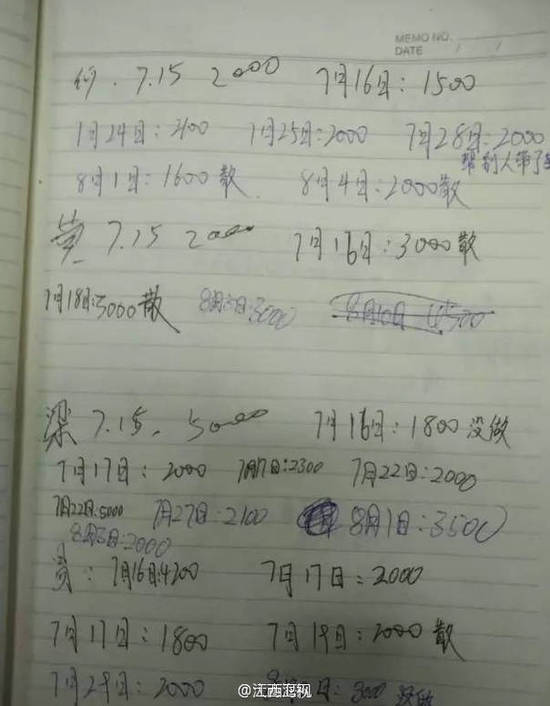 MEMO NO.
DATE / /
7.15 2000 7月16日:1500
1月24日:2100 1月25日:2000 7月28日:2000
帮别人带了
8月1日:1600散 8月4日:2000散
7.15 2000 7月16日:3000散
7月18日:5000散 8月3日:3000 8月10日 4500
梁 7.15. 5000 7月16日:1800没做
7月17日:2000 7月17日:2300 7月22日:2000
7月22日:5000 7月27日:2100 8月1日:3500
8月3日:2000
员:7月16日:4200 7月17日:2000
7月17日:1800 7月19日:2000散
7月29日:2000 3000 没做
@江西晨视